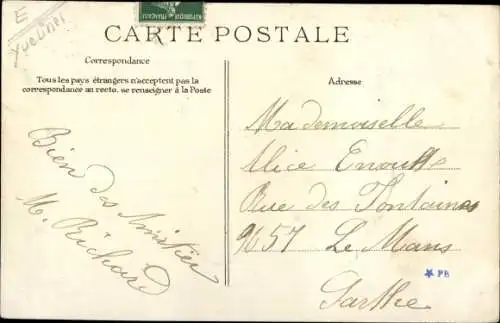 E
CARTE POSTALE
Correspondance
Tous les pays étrangers n'acceptent pas la
correspondance au recto. se renseigner à la Poste
Bien des Amitiés
M. Richard
Adresse
Mademoiselle
Alice
Rue des Fontaines
9657 Le Mans
Sarthe
PB